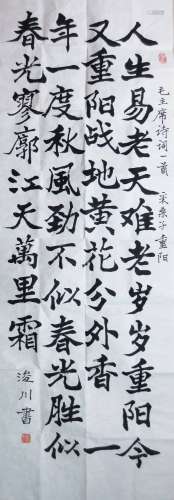 毛主席诗词一首 采桑子重阳
人生易老天难老岁岁重阳今
又重阳战地黄花分外香一
年一度秋風劲不似春光胜似
春光寥廓江天萬里霜
浚川書